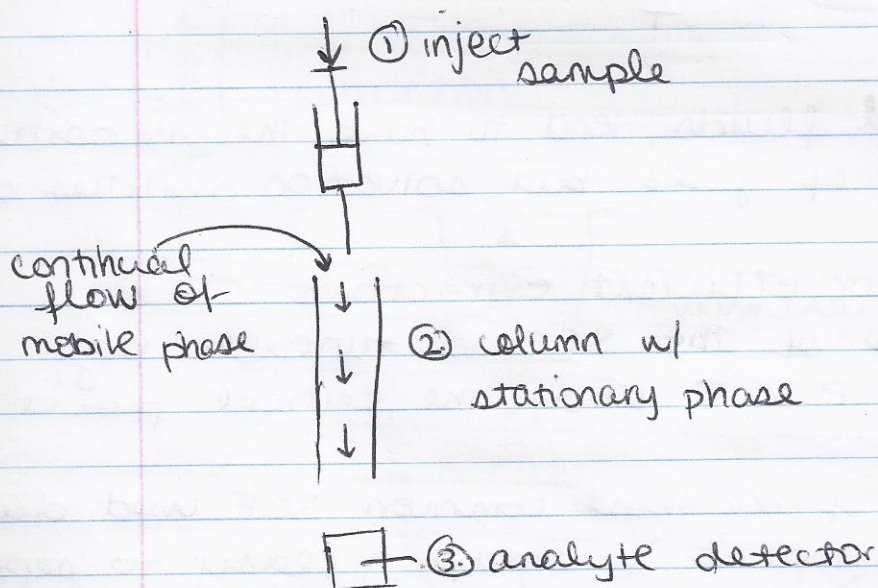 ① inject
sample
continual
flow of
mobile phase
② column w/
stationary phase
③ analyte detector